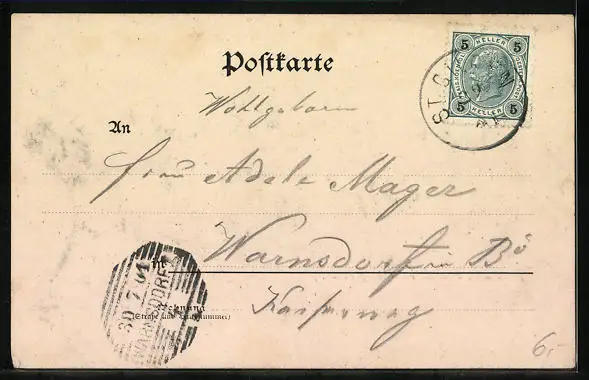 Postkarte
5 HELLER 5
5 HELLER 5
ST. G
Wohlgeboren
An
Frau Adele Mager
Warnsdorf in Bö
in
30 7 01
WARNSDORF
Wohnung
(Straße und Hausnummer)
6.-